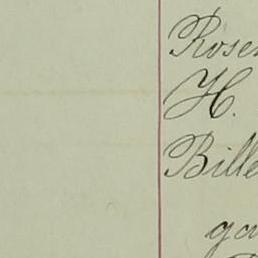 Rosen
H.
Bille
ga